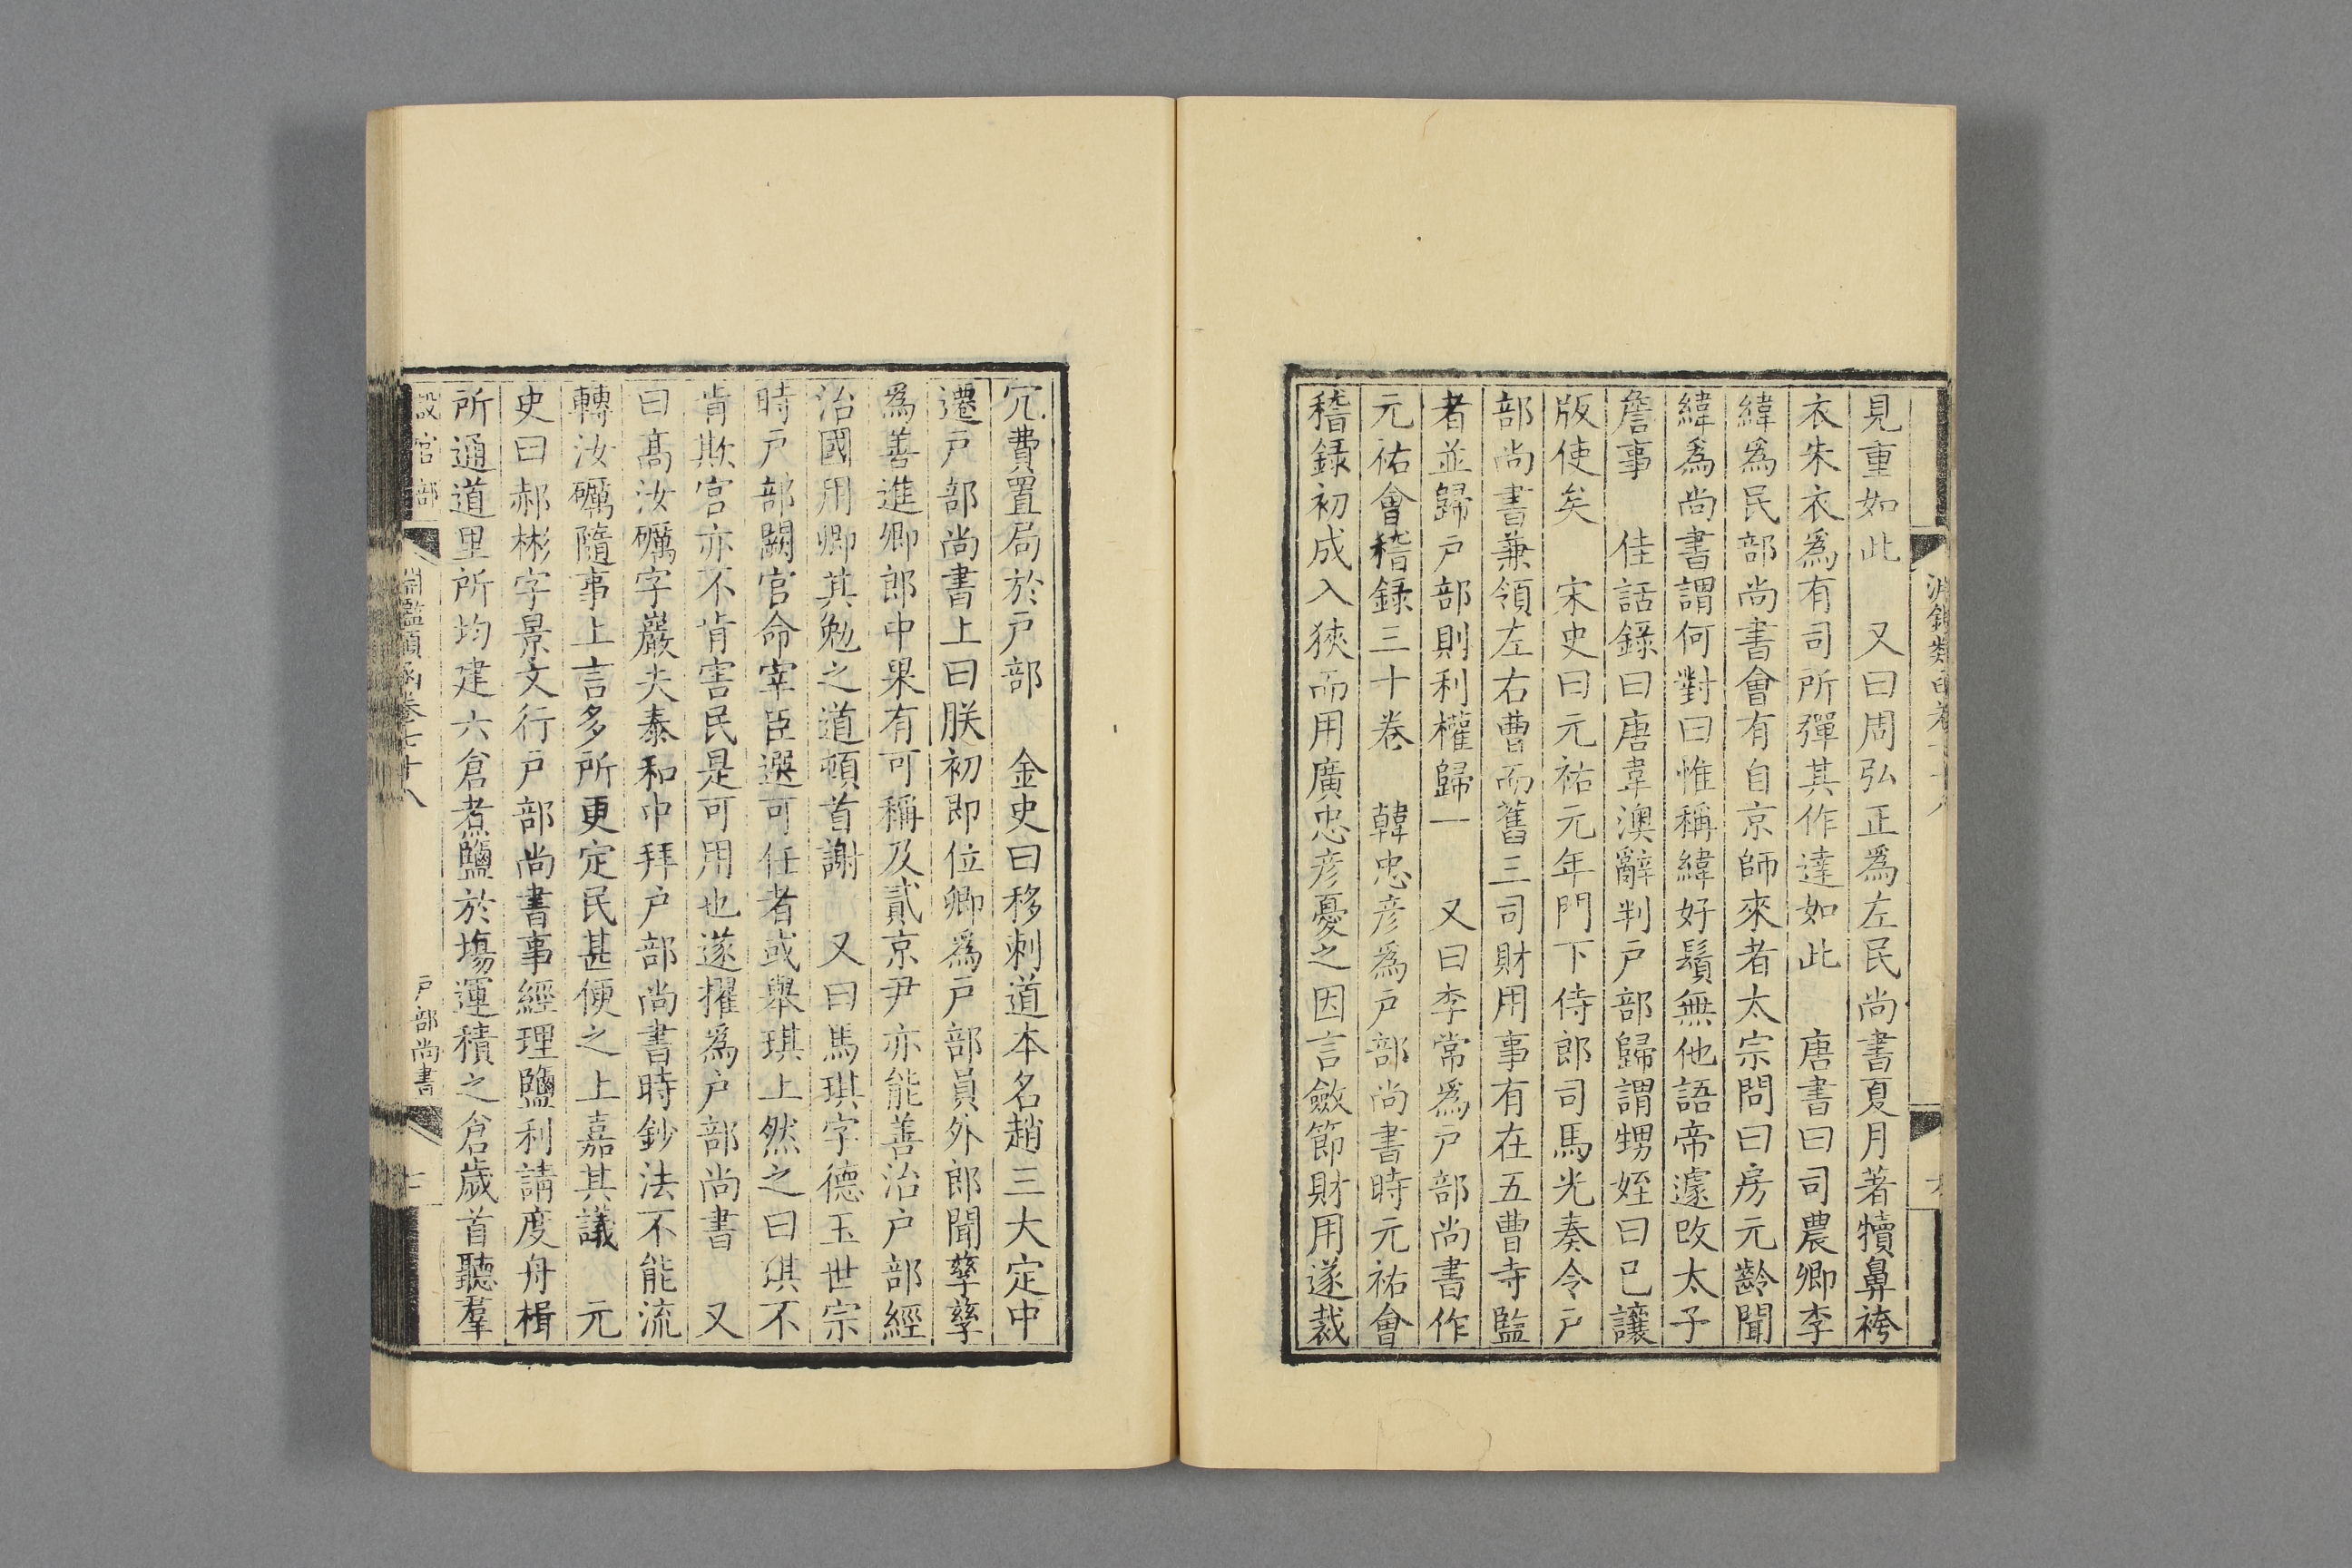 見重如此　又曰周弘正爲左民尚書夏月著犢鼻袴
衣朱衣爲有司所彈其作達如此　唐書曰司農卿李
緯爲民部尚書會有自京師來者太宗問曰房元齡聞
緯爲尚書謂何對曰惟稱緯好鬚無他語帝遽改太子
詹事　佳話錄曰唐韋澳辭判戸部歸謂甥姪曰已讓
版使矣　宋史曰元祐元年門下侍郎司馬光奏令戸
部尚書兼領左右曹而舊三司財用事有在五曹寺監
者並歸戸部則利權歸一　又曰李常爲戸部尚書作
元祐會稽錄三十卷　韓忠彦爲戸部尚書時元祐會
稽録初成入狹而用廣忠彦憂之因言斂節財用遂裁
冗費置局於戸部　金史曰移剌道本名趙三大定中
遷戸部尚書上曰朕初即位卿爲戸部員外郎聞孳孳
爲善進卿郎中果有可稱及貳京尹亦能善治戸部經
治國用卿其勉之道頓首謝　又曰馬琪字德玉世宗
時戸部闕官命宰臣選可任者或舉琪上然之曰琪不
肯欺官亦不肯害民是可用也遂擢爲戸部尚書　又
曰髙汝礪字巖夫泰和中拜戸部尚書時鈔法不能流
轉汝礪隨事上言多所更定民甚便之上嘉其議　元
史曰郝彬字景文行戸部尚書事經理鹽利請度舟楫
所通道里所均建六倉煮鹽於塲運積之倉歲首聽羣
設官部
淵鑑類函卷七十八
戸部尚書